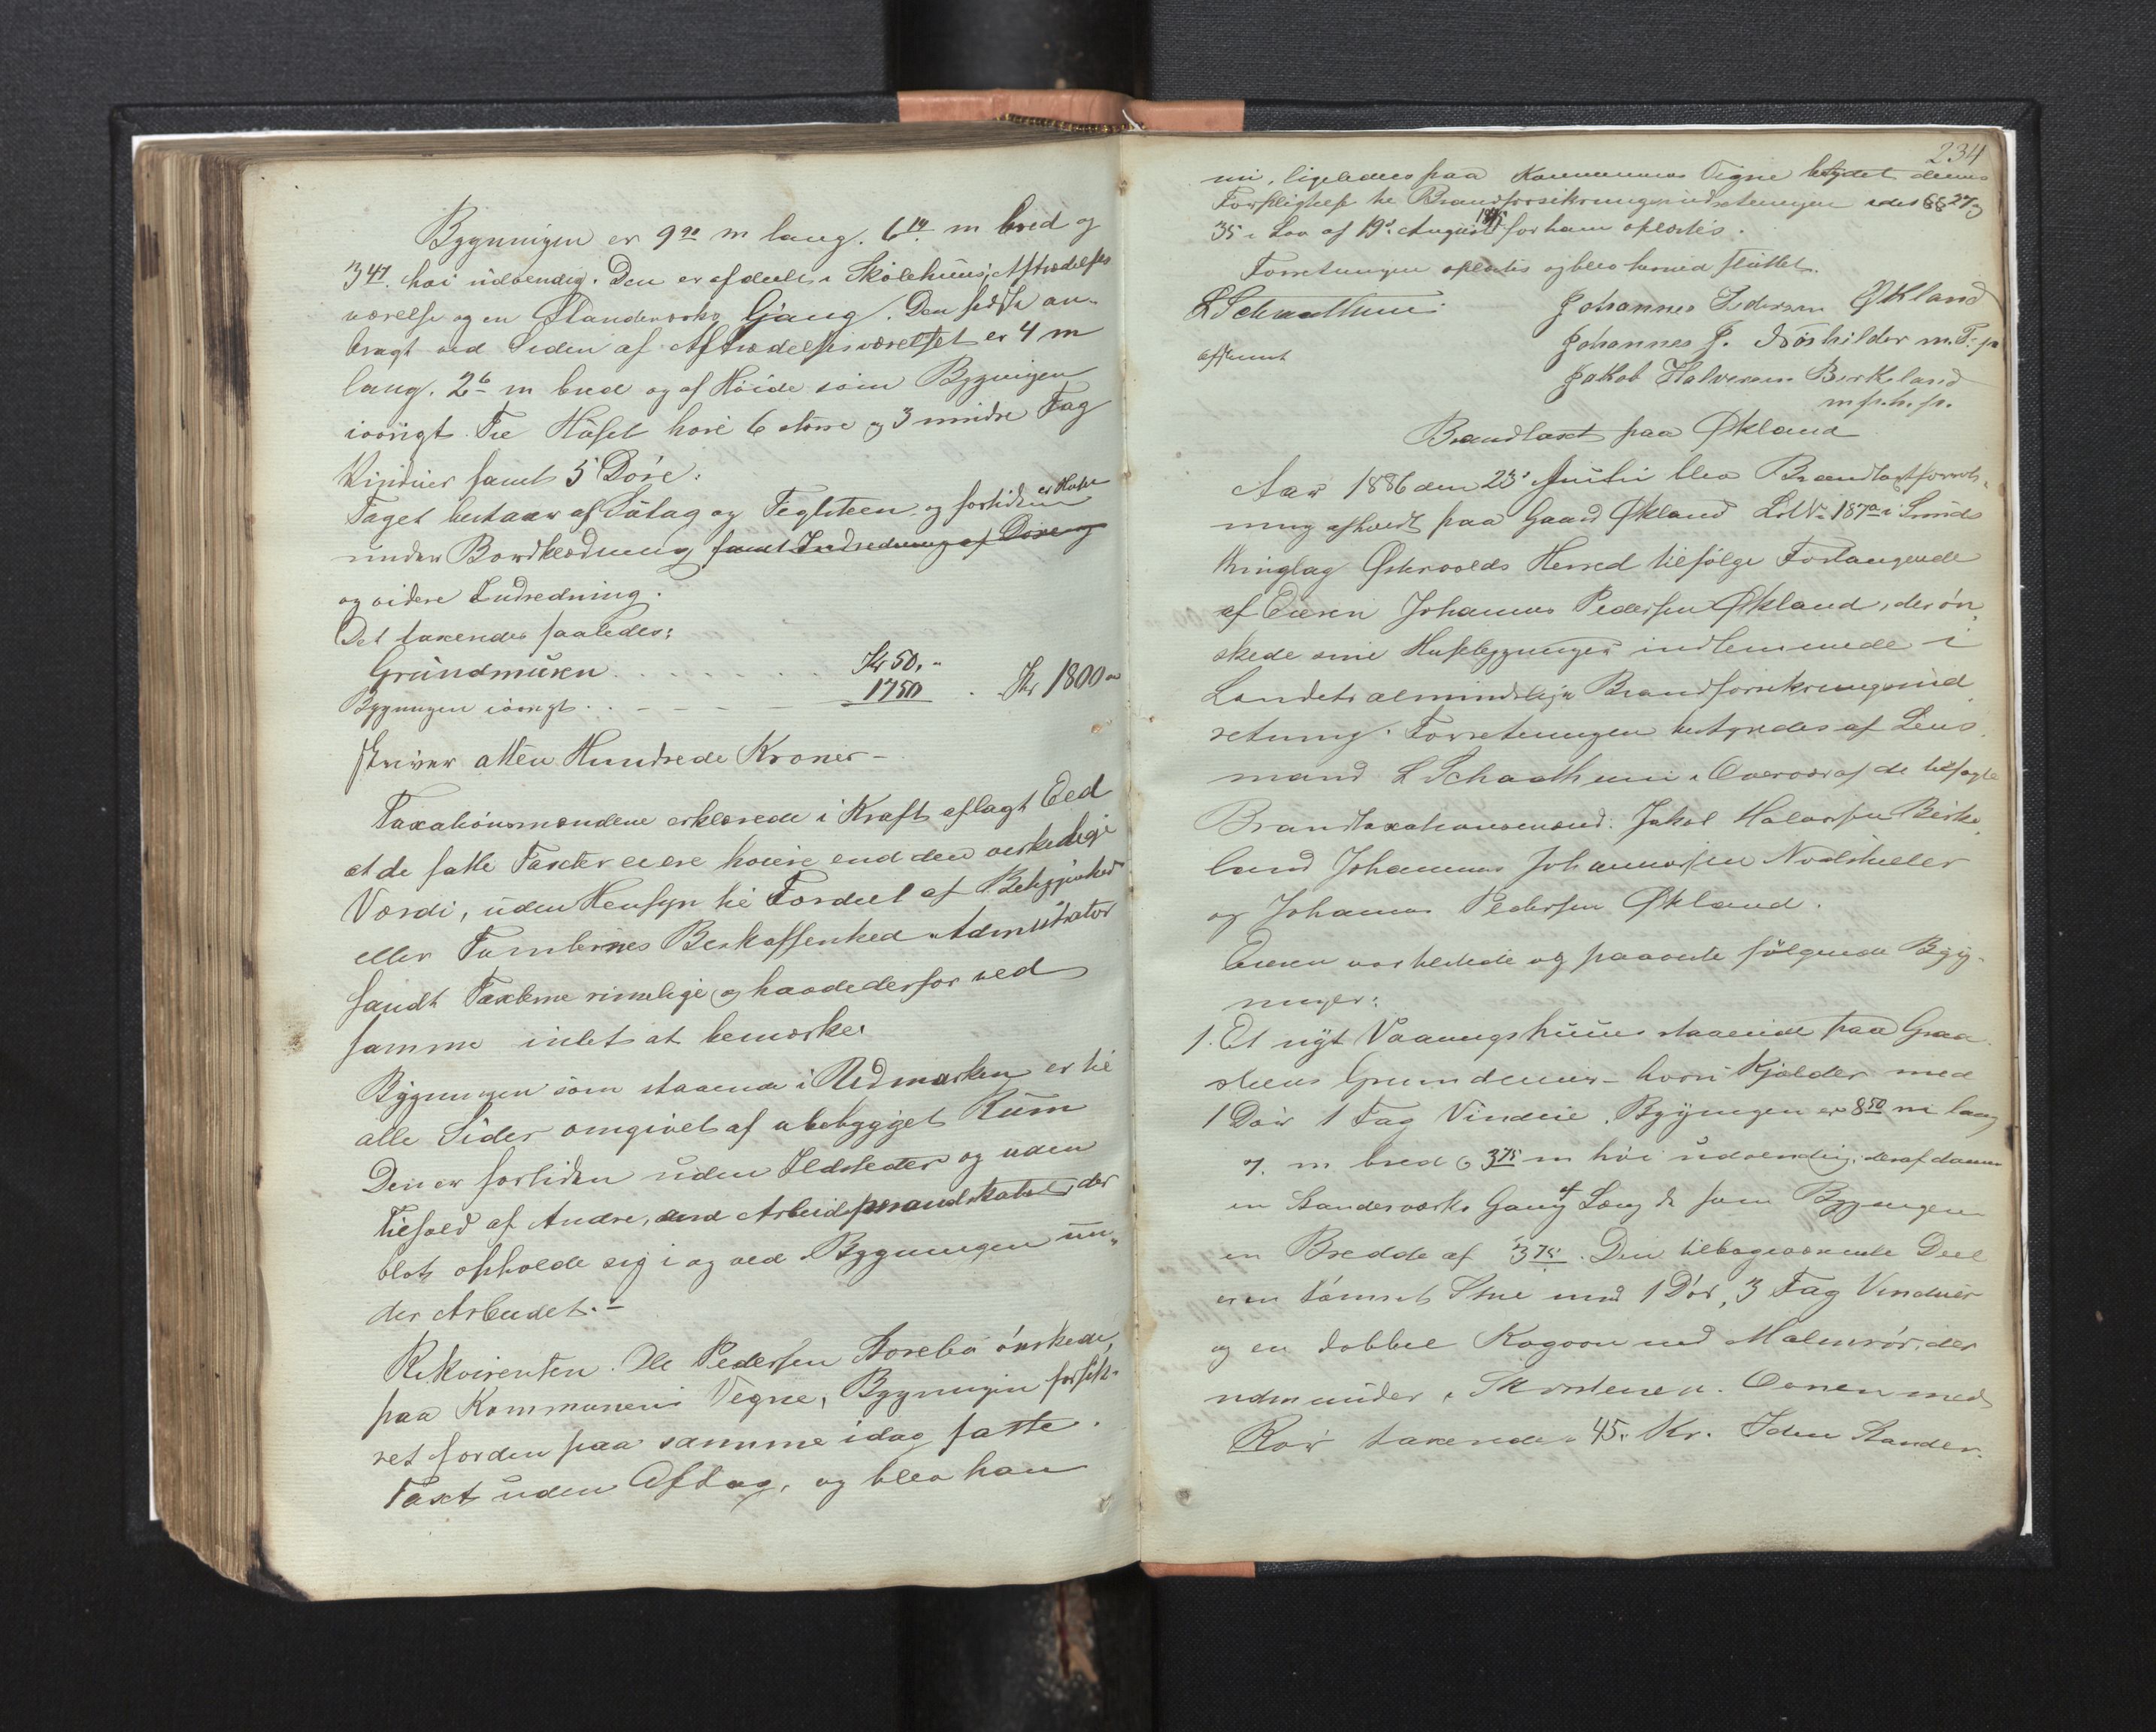 Bygningen er 9 90 m lang. 6 14 m bred og
3 47. høi udvendig. Den er afdeelt i Skolehuus, Aftrædelses
værelse og en Standerværks Gang. Den sidste an-
bragt ved Siden af Aftrædelsesværelset er 4 m
lang. 2 6 m bred og af Høide som Bygningen
iøvrigt. Til Huset høre 6 større og 3 mindre Fag
Vinduer samt 5 Døre.
Taget bestaar af Sutag og Teglsteen og fortiden er Huset
under Bordklædning samt Indredning af Døre og
og videre Indredning.
Det taxeredes saaledes:
Grundmuren . . . . . . . Kr 50. "
Bygningen iøvrigt . . - - - - 1750 . Kr 1800 "
skriver atten Hundrede Kroner -
Taxationsmændene erklærede i Kraft aflagt Eed
at de satte Taxter ei ere høiere end den virkelige
Værdi, uden Hensyn til Fordeel af Beliggenhed
eller Tomternes Beskaffenhed. Administrator
fandt Taxterne rimelige og havde derfor ved
samme intet at bemærke.
Bygningen som staaende i Udmarken er til
alle Sider omgivet af ubebygget Rum
Den er fortiden uden Ildsteder og uden
Tilhold af Andre, end Arbeidsmandskabet der
blot opholde sig i og ved Bygningen un-
der Arbeidet. -
Rekvirenten Ole Pedersen Storebø ønskede,
paa Kommunens Vegne, Bygningen forsik-
ret for den paa samme idag satte
Taxt uden Afslag, og blev han
234
nu, ligeledes paa Kommunens Vegne betydet dennes
Forpligtelse til Brandforsikringsindretningen idet §§ 27 og
35 i Lov af 19de August 1845 for ham oplæstes.
Forretningen oplæstes og blev hermed sluttet.
L Schaathun.
Johannes Pedersen Økland
Johannes J. m. F. p
Jakob Halvorsen Birkeland
m. p. h. p.
afsendt
Brandtaxt paa Økland
Aar 1886 den 23de Juni blev Brandtaxtforret-
ning afholdt paa Gaard Økland LøbN. 187a i Sunds
Thinglag Østervolds Herred tilfølge Forlangende
af Eieren Johannes Pedersen Økland, der øn-
skede sine Husebygninger indlemmede i
Landets almindelige Brandforsikringsind
retning. Forretningen bestyredes af Lens-
mand L Schaathun i Overvær af de tilsagte
Brandtaxationsmænd: Jakob Halvorsen Birke-
land Johannes Johannessen
og Johannes Pedersen Økland.
Eieren var tilstede og paaviste følgende Byg-
ninger:
1. Et nyt Vaaningshuus staaende paa Graa-
steens Grundmur - hvori Kjælder med
1 Dør 1 Fag Vindue. Bygningen er 8 50 m lang
7. m bred og 3 75 m høi udvendig, deraf danner
en Standerværks Gang af Længde som Bygningen
en Bredde af 3 75. Den tilbageværende Deel
er en tømret Stue med 1 Dør, 3 Fag Vinduer
og en dobbel Kogovn med Malmrør, der
udmunder i Skorstenen. Ovnen med
Rør taxeredes 45. Kr. I den Stander-